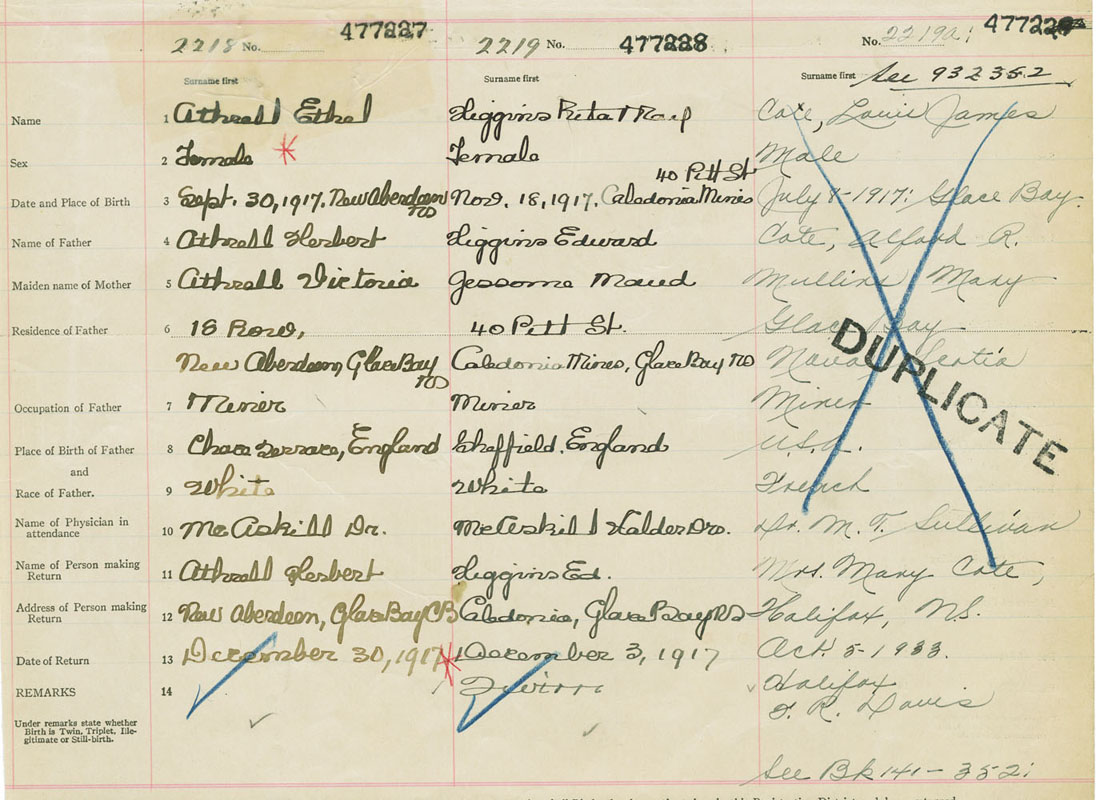 2218 No. 477227 2219 No. 477228 No. 2219a; 
Surname first Surname first Surname first See 932352
Name 1 Athrall Ethel Higgins Rita Mary Cote, Louis James
Sex 2 Female Female Male
40 Pitt St
Date and Place of Birth 3 Sept. 30, 1917. New Aberdeen Nov. 18, 1917. Caledonia Mines July 1917: Glace Bay.
Name of Father 4 Athrall Herbert Higgins Edward Cote, Alford R.
Maiden name of Mother 5 Athrall Victoria Jessome Maud Mullins Mary
Residence of Father 6 18 Row, 40 Pitt St. Glace Bay
New Aberdeen, Glace Bay Caledonia Mines, Glace Bay NS Nova Scotia
DUPLICATE
Occupation of Father 7 Miner Miner Miner
Place of Birth of Father 8 Chace Terrace, England Sheffield. England U.S.A.
and
Race of Father. 9 White White French
Name of Physician in attendance 10 McAskill Dr. McAskill Calder Drs. Dr. M. T. Sullivan
Name of Person making Return 11 Athrall Herbert Higgins Ed. Mrs. Mary Cote,
Address of Person making Return 12 New Aberdeen, Glace Bay CB Caledonia, Glace Bay NS Halifax, NS.
Date of Return 13 December 30, 1917 December 3, 1917 Oct. 5-1933.
REMARKS 14 Twins Halifax
Davis
Under remarks state whether
Birth is Twin, Triplet, Ille-
gitimate or Still-birth.
See Bk 141-352: